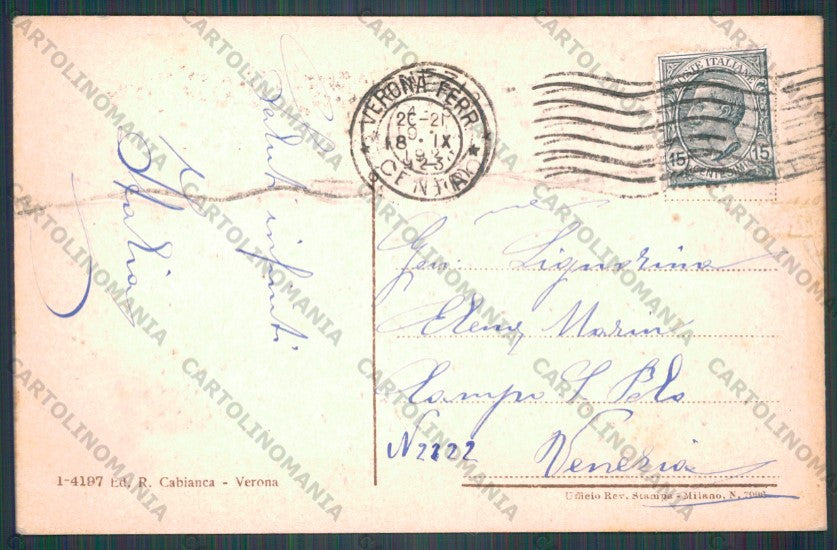 Saluti infiniti
Italia
VERONA FERR.
20-21
18 IX
1923
CENTRO
POSTE ITALIANE
15 15
CENTESIMI
Gen. Signorina
Elena Marin
Campo S. Polo
N 2122
Venezia
1-4197 Ed. R. Cabianca - Verona
Ufficio Rev. Stampa - Milano, N.
CARTOLINOMANIA